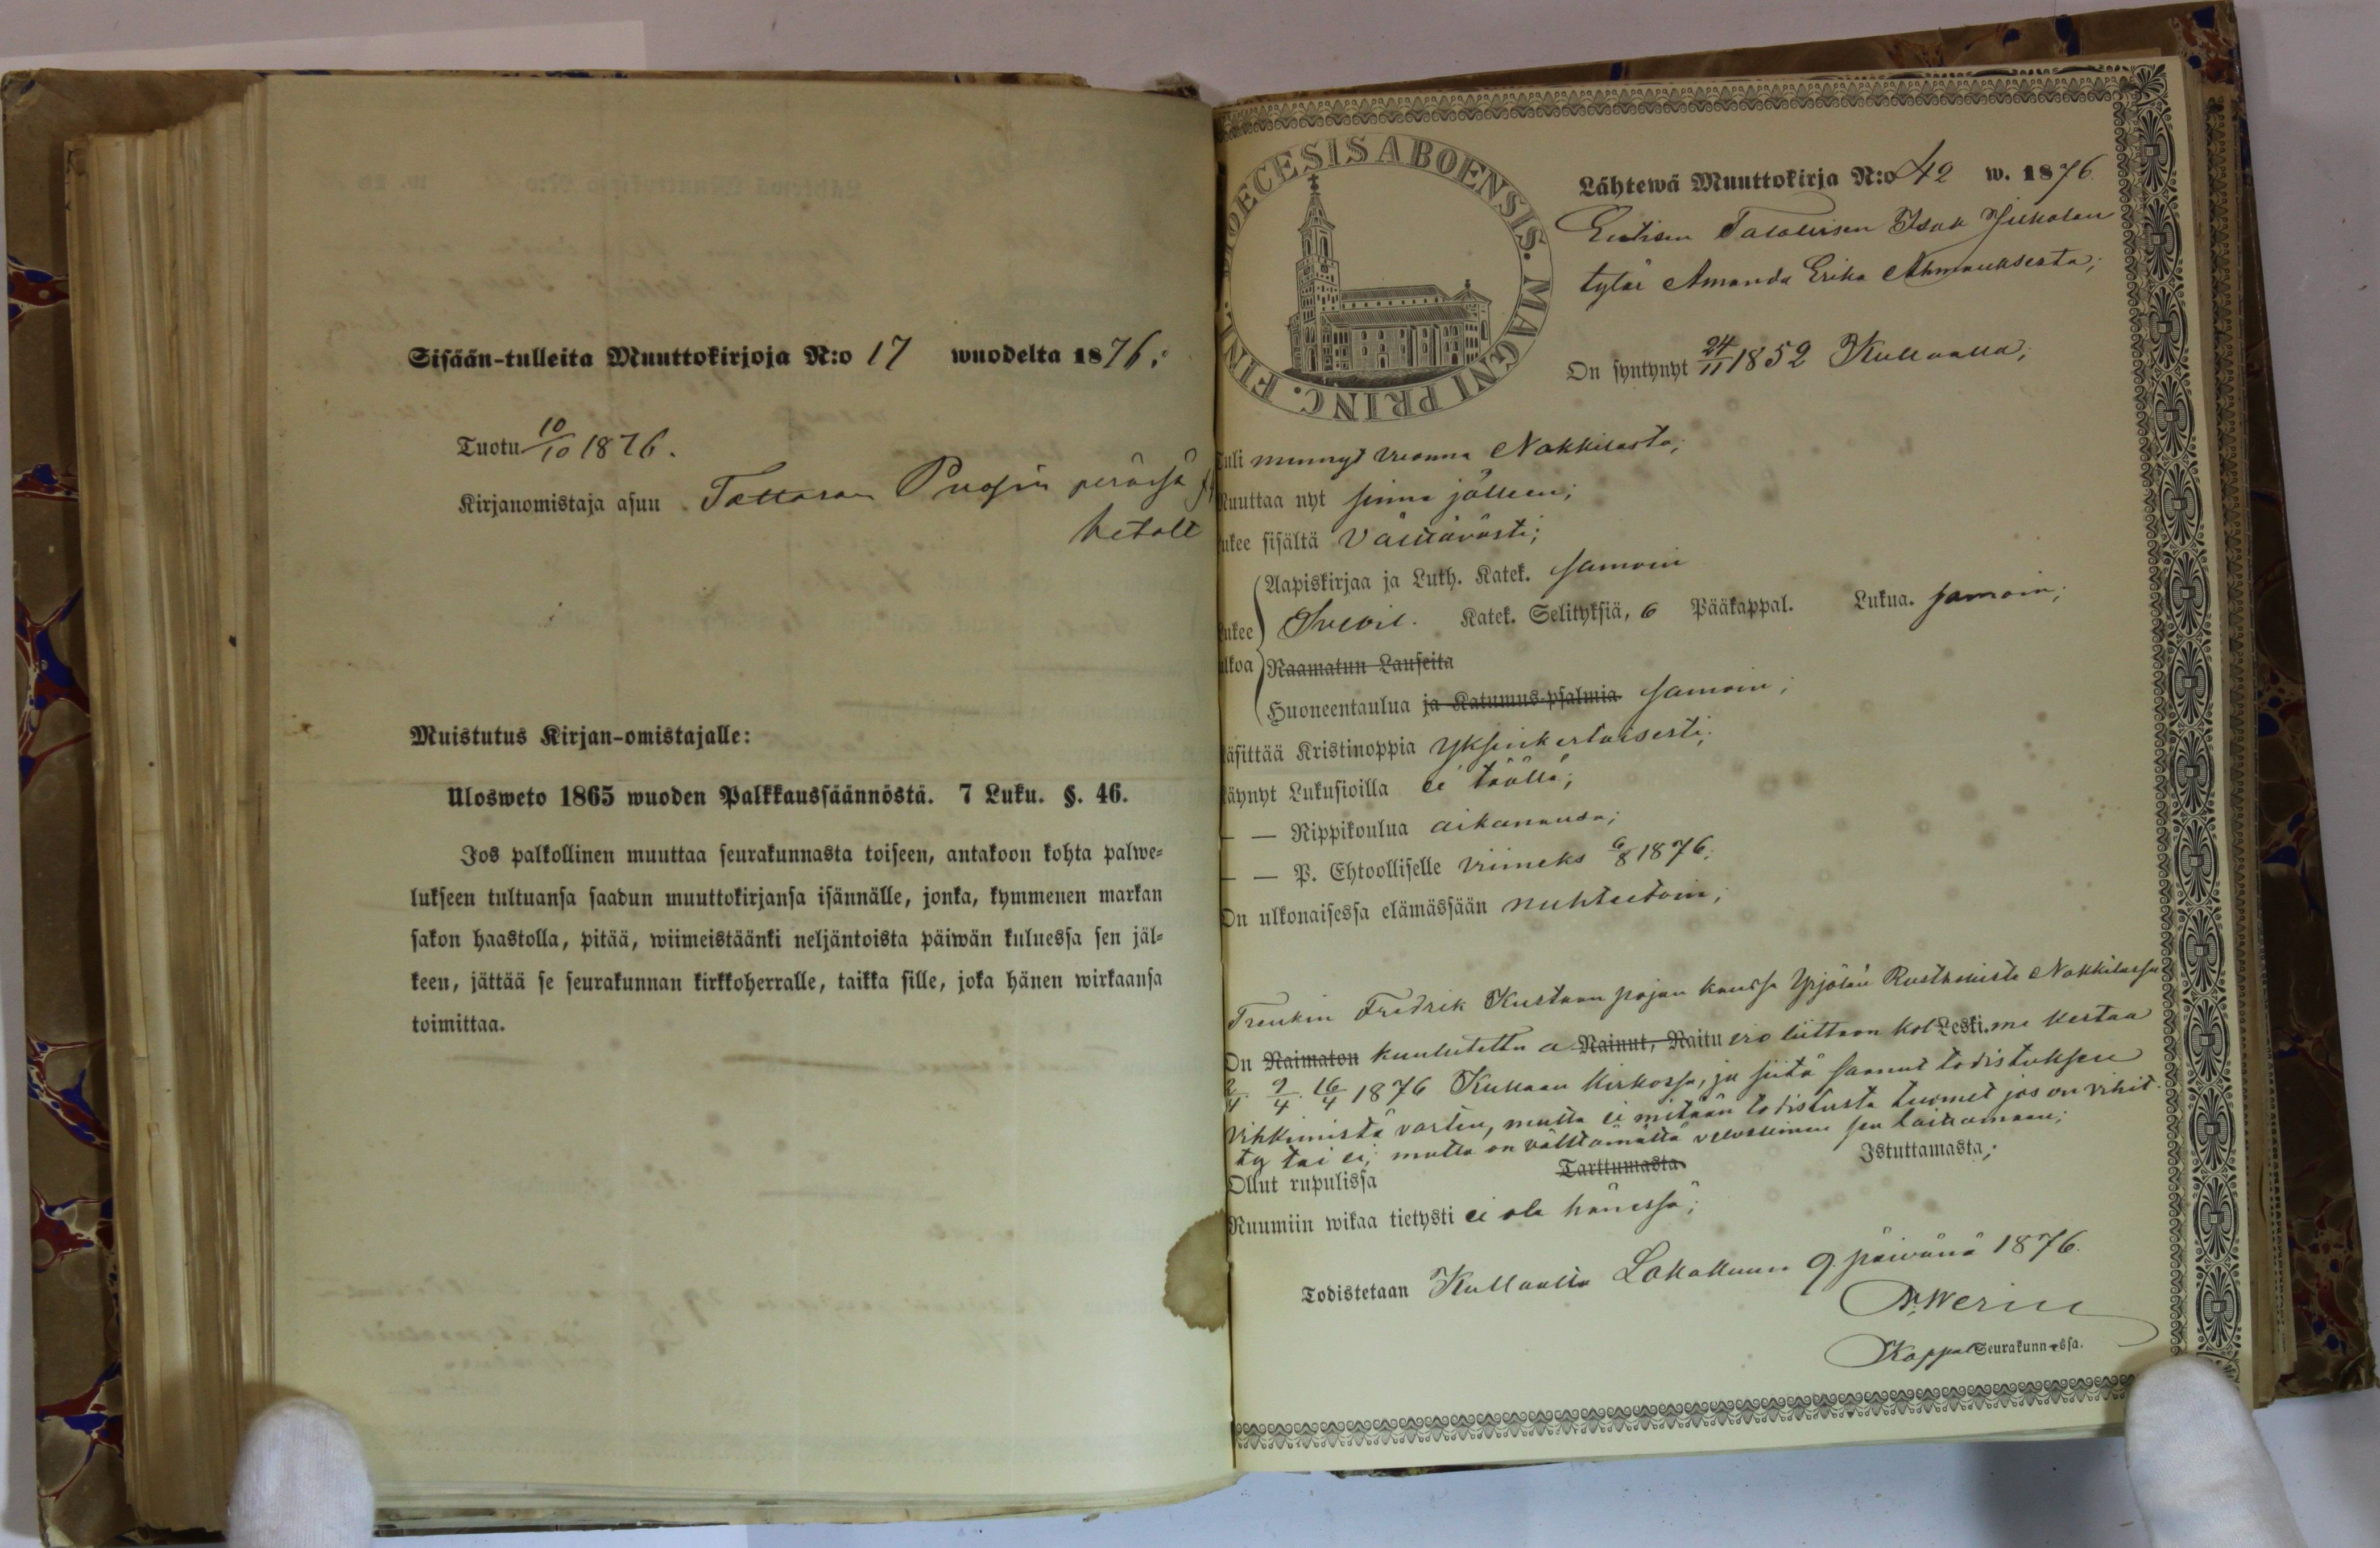 Sisään-tulleita Muuttokirjoja N:o 17 wuodelta 1876.
Tuotu 10/10 1876.
Kirjanomistaja asuu Tattaran perässä
Muistutus Kirjan-omistajalle:
Ulosweto 1865 wuoden Palkkaussäännöstä. 7 Luku. §. 46.
Jos palkollinen muuttaa seurakunnasta toiseen, antakoon kohta palwe-
lukseen tultuansa saadun muuttokirjansa isännälle, jonka, kymmenen markan
sakon haastolla, pitää, wiimeistäänki neljäntoista päiwän kuluessa sen jäl-
keen, jättää se seurakunnan kirkkoherralle, taikka sille, joka hänen wirkaansa
toimittaa.
DIOECESIS ABOENSIS. MAGNI PRINC. FINL.
Lähtewä Muuttokirja N:o 42 w. 1876
Entisen Talollisen Isak
tytär Amanda Erika
On syntynyt 24/11 1852 Kullaalla;
Tuli mennyt vuonna Nakkilasta;
Muuttaa nyt sinne jälleen;
Lukee sisältä Välttävästi;
Aapiskirjaa ja Luth. Katek. samoin
Lukee Svebil. Katek. Selityksiä, 6 Pääkappal. Lukua. samoin;
ulkoa Raamatun Lauseita
Huoneentaulua ja Katumus-psalmia samoin;
Käsittää Kristinoppia yksinkertaisesti;
Käynyt Lukusioilla ei täällä;
— — Rippikoulua aikanansa;
— — P. Ehtoolliselle viimeks 6/8 1876;
On ulkonaisessa elämässään nuhteetoin;
Trenkin Fredrik Kustaan pojan kanssa Yrjölän Rusthollista Nakkilassa
On Naimaton kuulutettu a Nainut, Naitu Leski. me kertaa
2/4. 9/4. 16/4 1876 Kullaan kirkossa, ja siitä saanut todistuksen
vihkimistä varten, mutta ei mitään todistusta tuonut jos on vihit-
ty tai ei; mutta on välttämättä velvollinen sen laittamaan;
Ollut rupulissa Tarttumasta Istuttamasta;
Ruumiin wikaa tietysti ei ole hänessä;
Todistetaan Kullaalla Lokakuun 9 päivänä 1876.
Kappel Seurakunn-essa.